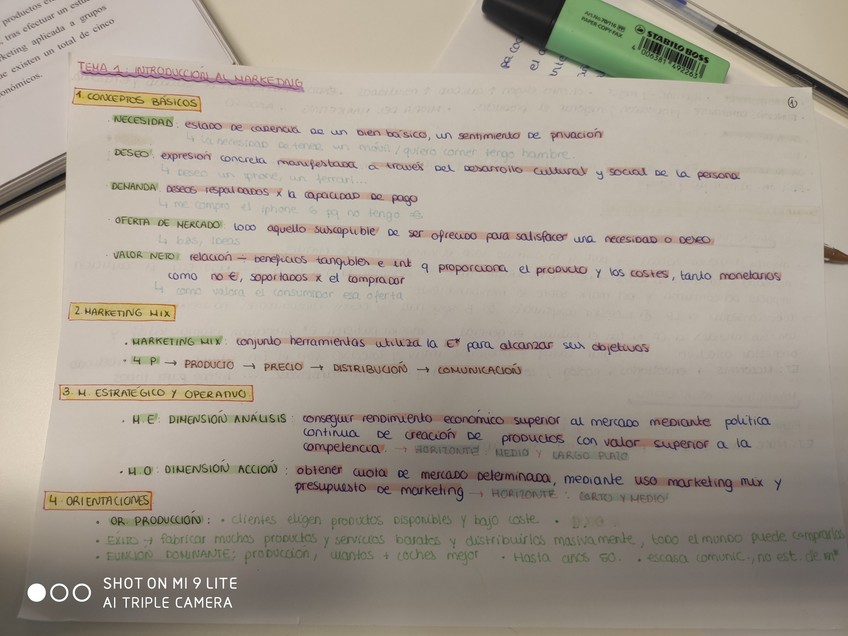 productos
tras efectuar un estu
keting aplicada a grupos
e existen un total de cinco
onómicos.
PAPER-COPY-FAX
STABILO BOSS
4 006381 492263
TEMA 1: INTRODUCCIÓN AL MARKETING
1
1. CONCEPTOS BÁSICOS
· NECESIDAD: estado de carencia de un bien básico, un sentimiento de privación
↳ la necesidad de tener un móvil / quiero comer tengo hambre.
· DESEO: expresión concreta manifestada a través del desarrollo cultural y social de la persona
↳ deseo un iphone, un ferrari...
· DEMANDA: deseos respaldados x la capacidad de pago
↳ me compro el iphone 6 pq no tengo €
· OFERTA DE MERCADO: todo aquello susceptible de ser ofrecido para satisfacer una necesidad o deseo
↳ bss, ideas
· VALOR NETO: relación - beneficios tangibles e int q proporciona el producto y los costes, tanto monetarios
como no €, soportados x el comprador
↳ como valora el consumidor esa oferta
2. MARKETING MIX
· MARKETING MIX: conjunto herramientas utiliza la Eª para alcanzar sus objetivos
· 4 P → PRODUCTO → PRECIO → DISTRIBUCIÓN → COMUNICACIÓN
3. M. ESTRATÉGICO Y OPERATIVO
· M.E: DIMENSIÓN ANÁLISIS: conseguir rendimiento económico superior al mercado mediante política
continua de creación de productos con valor superior a la
competencia. → HORIZONTE: MEDIO Y LARGO PLAZO
· M.O: DIMENSIÓN ACCIÓN: obtener cuota de mercado determinada, mediante uso marketing mix y
presupuesto de marketing → HORIZONTE: CORTO Y MEDIO
4. ORIENTACIONES
· OR. PRODUCCIÓN: · clientes eligen productos disponibles y bajo coste ·
· ÉXITO → fabricar muchos productos y servicios baratos y distribuirlos masivamente, todo el mundo puede comprarlos
· FUNCIÓN DOMINANTE: producción, cuantos + coches mejor · Hasta años 50. · escasa comunic., no est. de mº
SHOT ON MI 9 LITE
AI TRIPLE CAMERA